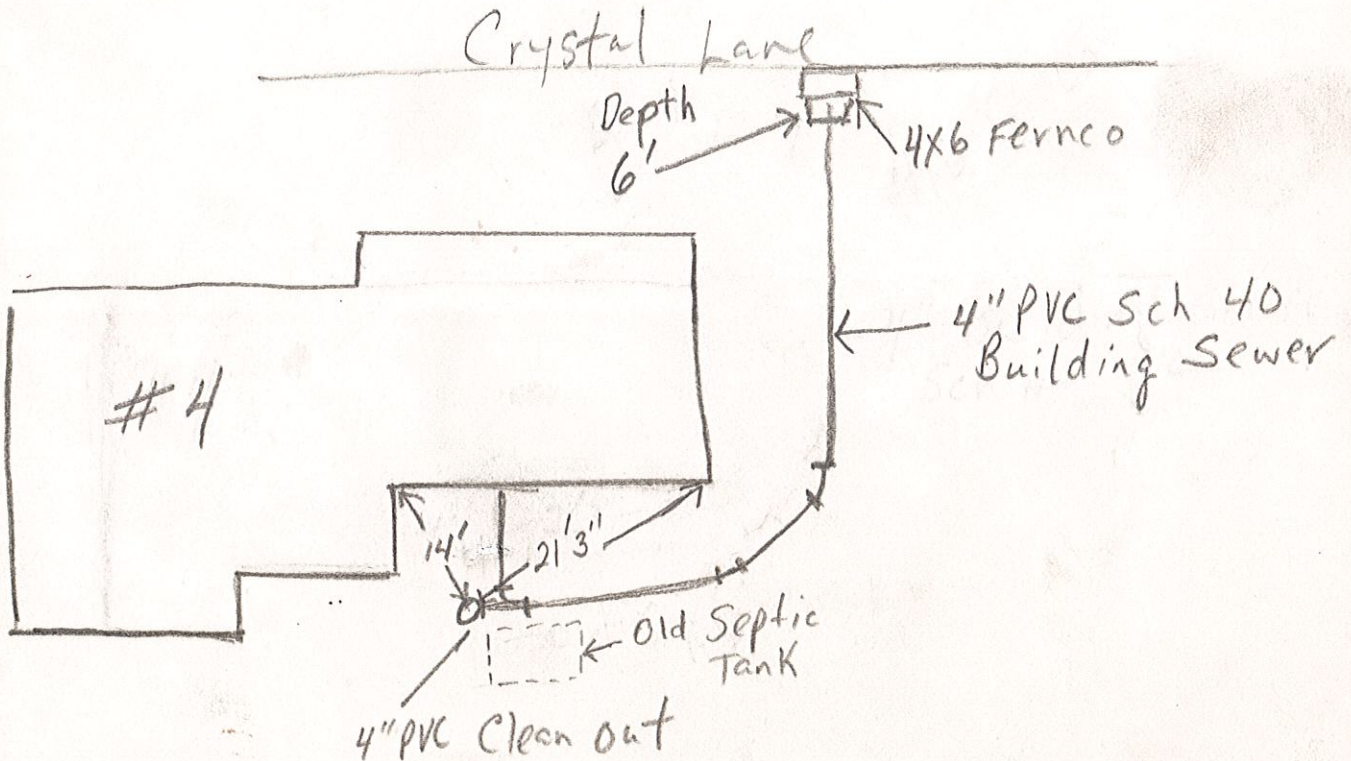 Crystal Lane
Depth
6'
4X6 Fernco
4" PVC Sch 40
Building Sewer
#4
14'
21'3"
Old Septic
Tank
4" PVC Clean out